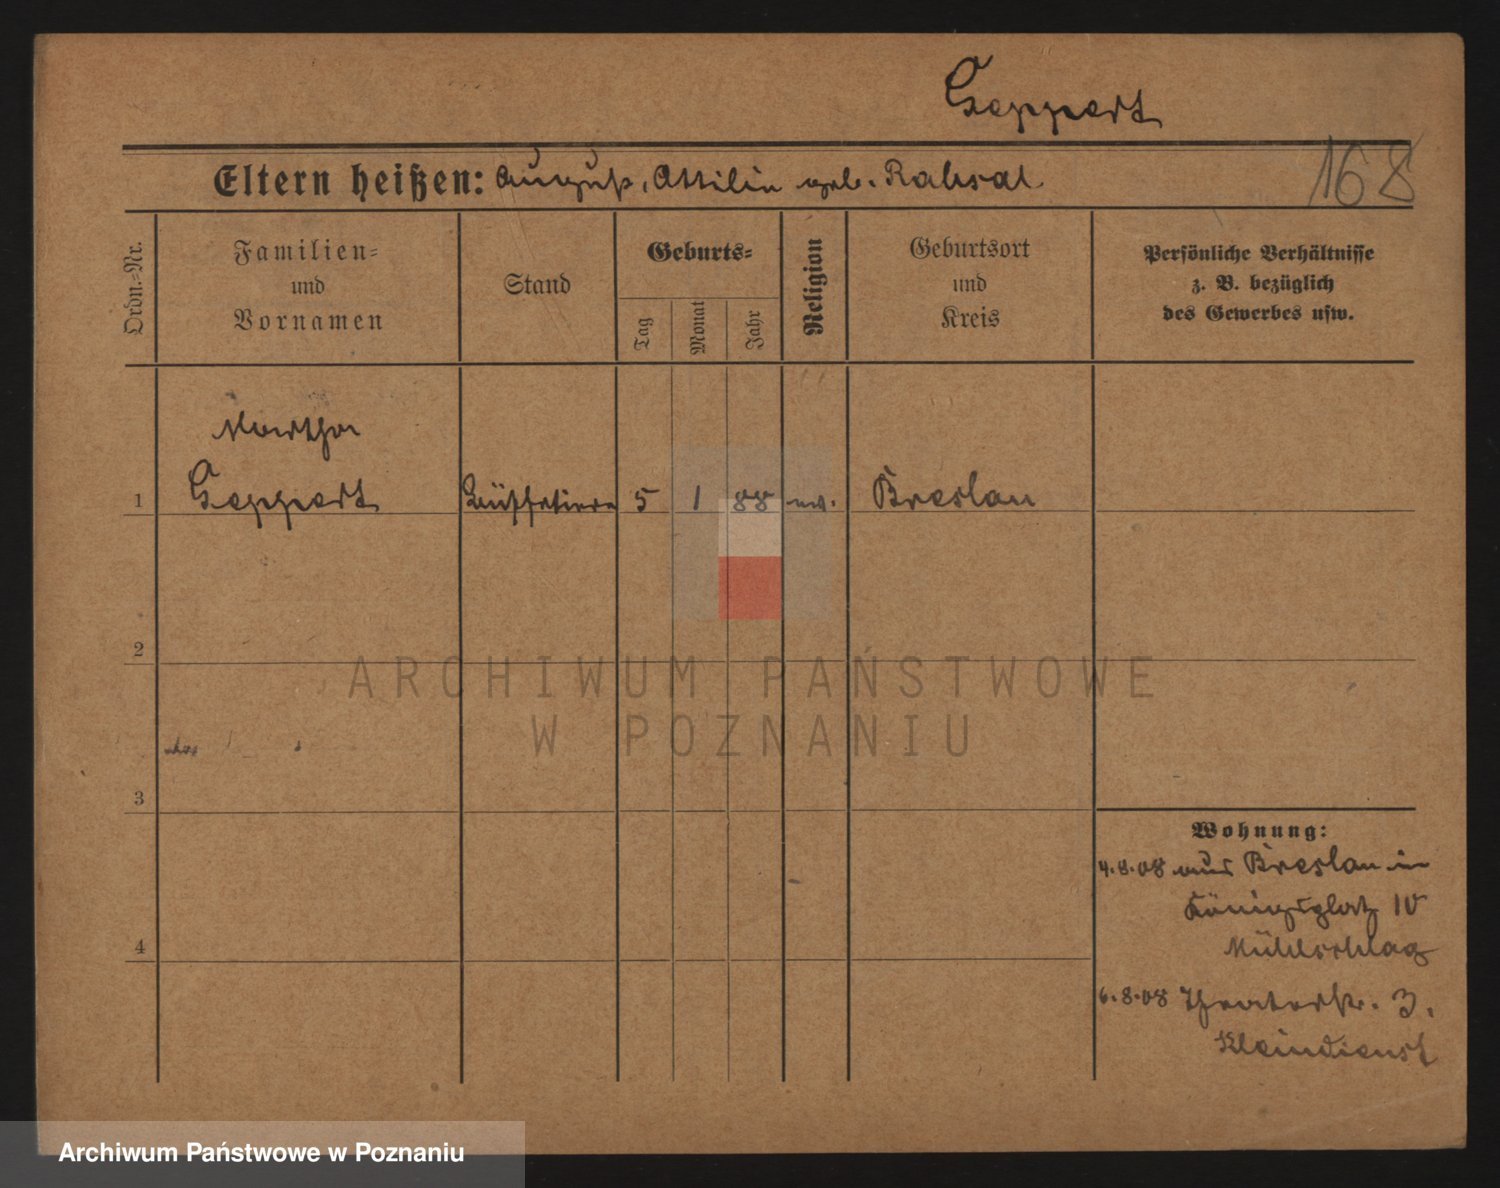 Geppert
168
Eltern heißen: August, Ottilie geb. Rabsal.
Ordn.=Nr.
Familien=
und
Vornamen
Stand
Geburts=
Tag
Monat
Jahr
Religion
Geburtsort
und
Kreis
Persönliche Verhältnisse
z. B. bezüglich
des Gewerbes usw.
Martha
1 Geppert Büffetiere 5 1 88 ev. Breslau
2
3
4
Wohnung:
4.8.08 aus Breslau in
Königsplatz 10
Mühlschlag
6.8.08 Theaterstr. 3.
Kleindienst
ARCHIWUM PAŃSTWOWE
W POZNANIU
Archiwum Państwowe w Poznaniu